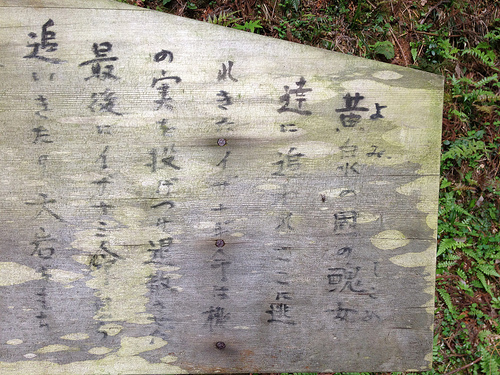 よみ しこめ
黄泉の国の醜女
達に追われここに逃
れきたイザナギ命は桃
の実を投げつけ退散させ
最後にイザナミ命
追いきたり大岩をもち